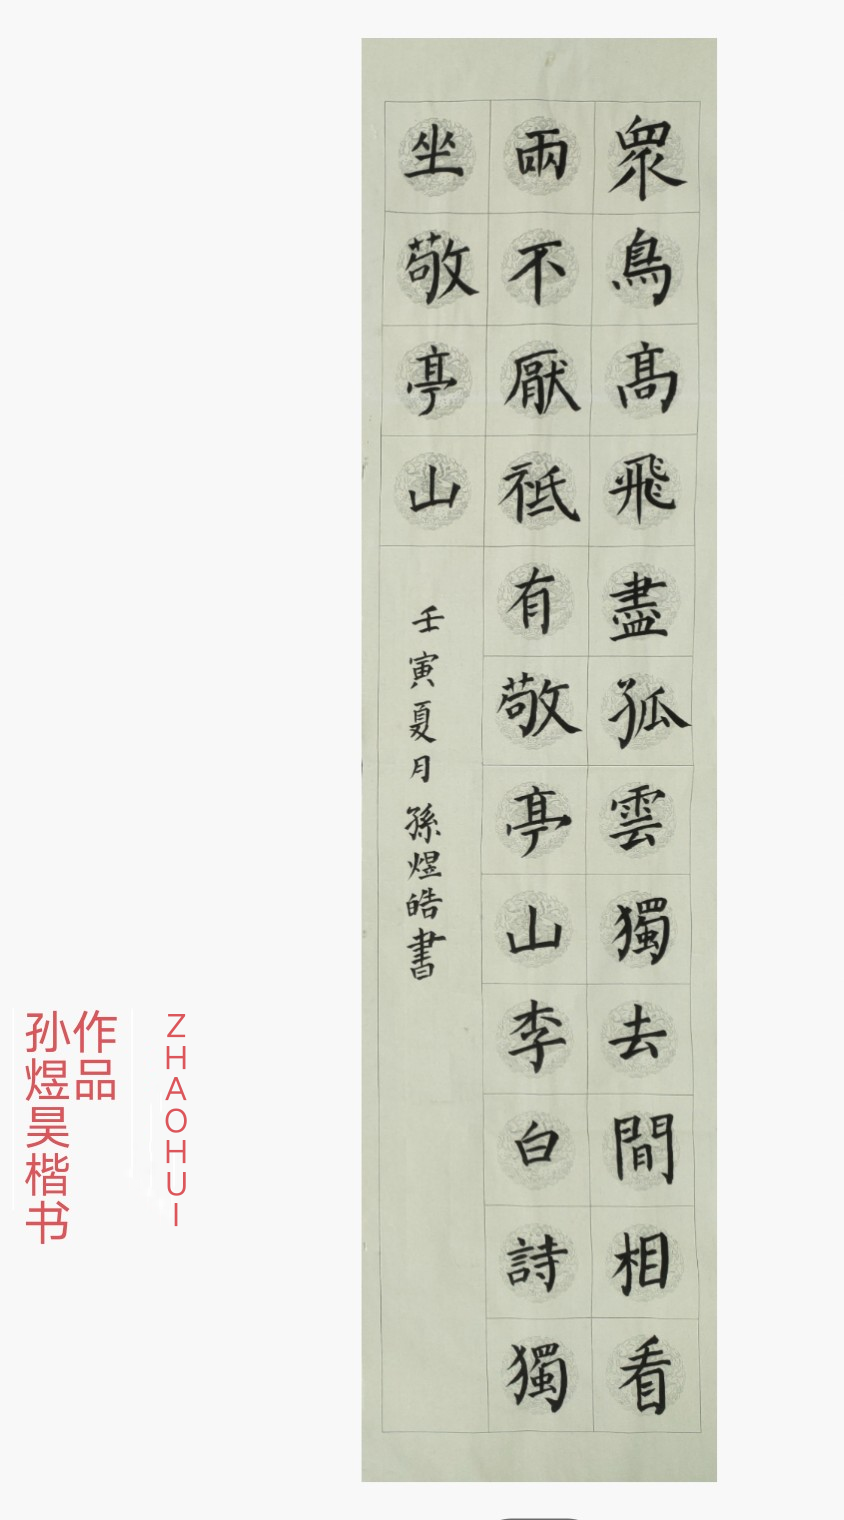 眾鳥髙飛盡孤雲獨去間相看
兩不厭祗有敬亭山李白詩獨
坐敬亭山
壬寅夏月孫煜皓書
孙煜昊楷书
作品
ZHAOHUI